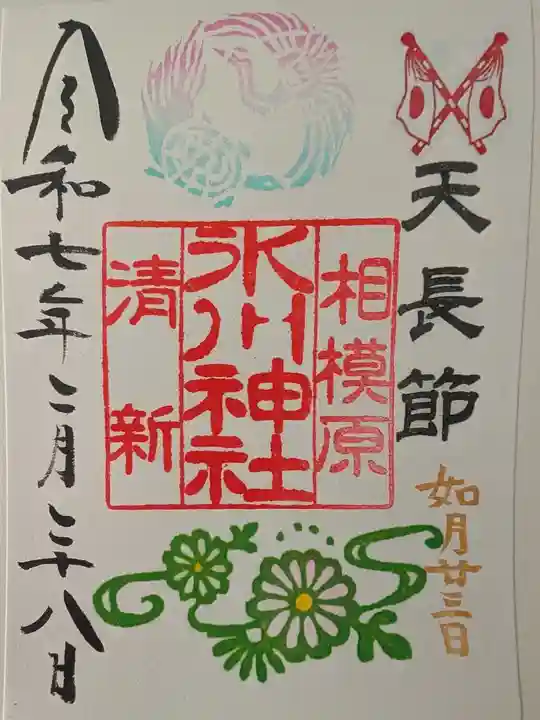 天長節
如月廿三日
相模原
氷川神社
清新
令和七年二月二十八日